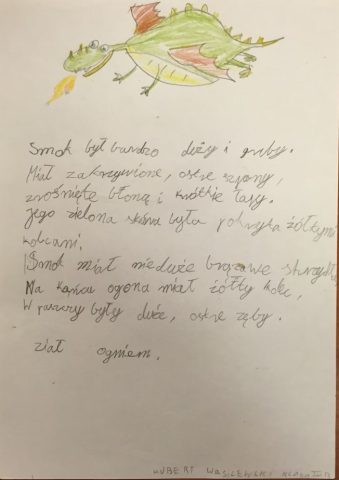 Smok był bardzo duży i gruby.
Miał zakrzywione, ostre szpony,
zrośnięte błoną i krótkie łapy.
Jego zielona skóra była pokryta żółtymi
kolcami.
Smok miał nieduże brązowe skrzydła
Na końcu ogona miał żółty kolec,
W paszczy były duże, ostre zęby.
ział ogniem.
HUBERT WASILEWSKI KLASA